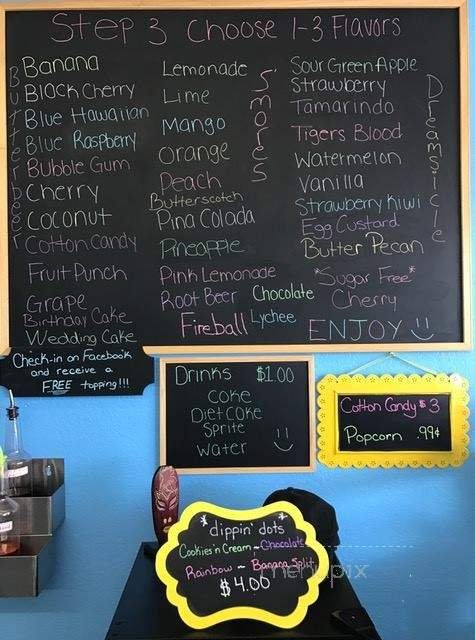 Step 3 Choose 1-3 Flavors
Butterbeer
Banana
Black Cherry
Blue Hawaiian
Blue Raspberry
Bubble Gum
Cherry
Coconut
Cotton Candy
Fruit Punch
Grape
Birthday Cake
Wedding Cake
Lemonade
Lime
Mango
Orange
Peach
Butterscotch
Pina Colada
Pineapple
Pink Lemonade
Root Beer
Fireball
S'mores
Chocolate
Lychee
Sour Green Apple
Strawberry
Tamarindo
Tigers Blood
Watermelon
Vanilla
Strawberry Kiwi
Egg Custard
Butter Pecan
*Sugar Free*
Cherry
ENJOY
Dreamsicle
Check-in on Facebook
and receive a
FREE topping!!!
Drinks $1.00
Coke
Diet Coke
Sprite
Water
Cotton Candy $3
Popcorn .99¢
*dippin' dots*
Cookies 'n Cream ~ Chocolate
Rainbow ~ Banana Split
$4.00
menupix